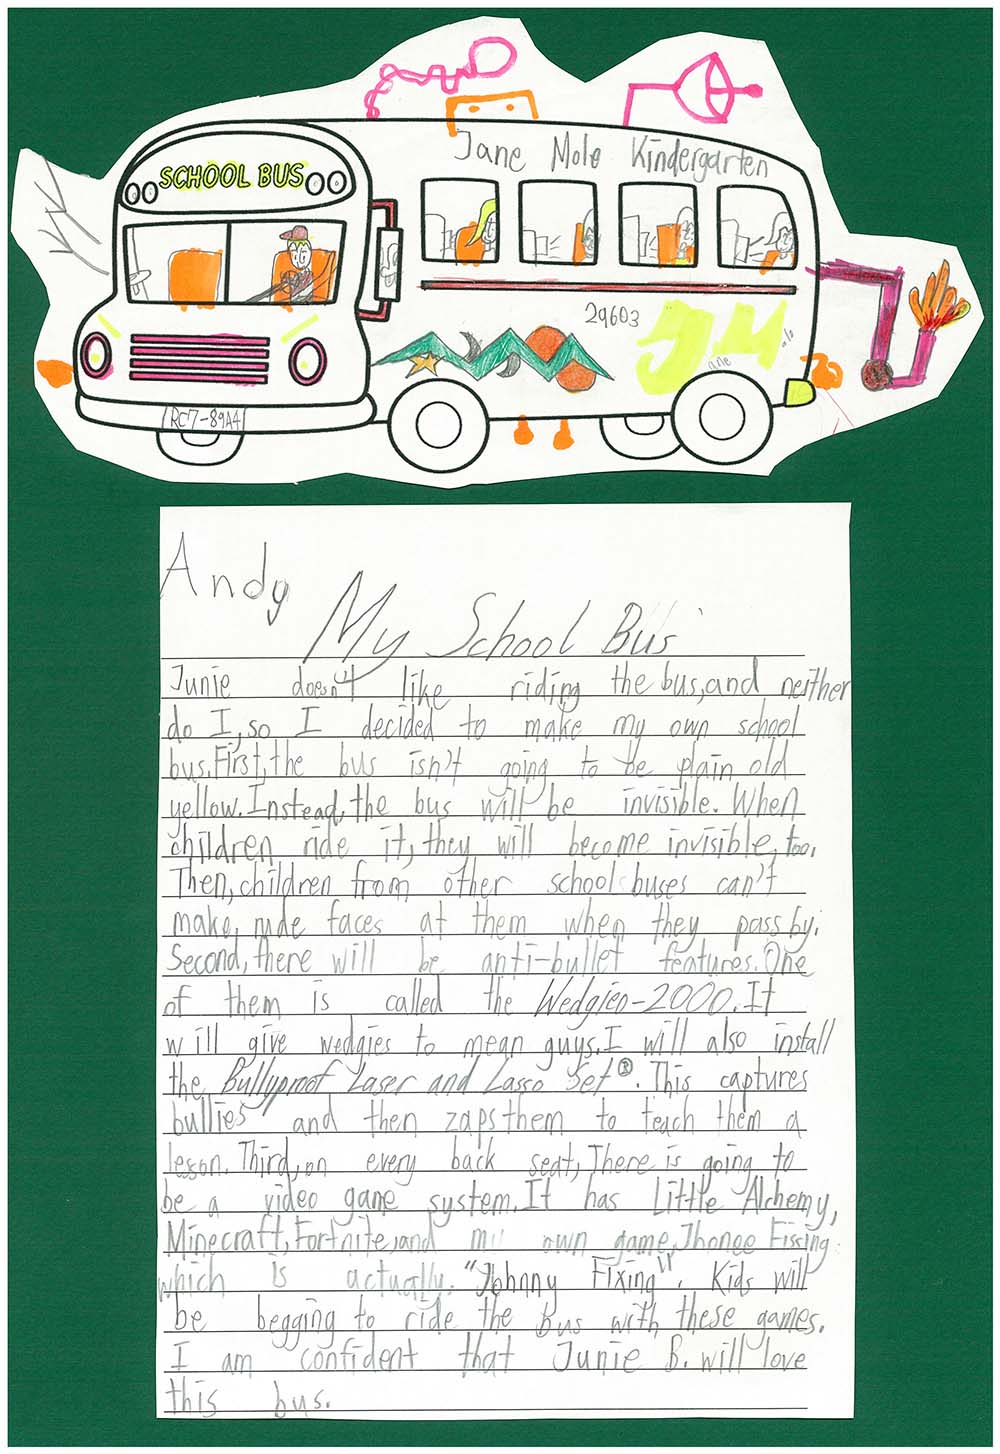 Jane Mole Kindergarten
SCHOOL BUS
29603
JM
ane
ole
RC7-89A4
Andy
My School Bus
Junie doesn't like riding the bus, and neither
do I, so I decided to make my own school
bus. First, the bus isn't going to be plain old
yellow. Instead, the bus will be invisible. When
children ride it, they will become invisible, too.
Then, children from other school buses can't
make rude faces at them when they pass by.
Second, there will be anti-bullet features. One
of them is called the Wedgien-2000. It
will give wedgies to mean guys. I will also install
the Bullyproof Laser and Lasso Set®. This captures
bullies and then zaps them to teach them a
lesson. Third, on every back seat, There is going to
be a video game system. It has Little Alchemy,
Minecraft, Fortnite, and my own game, Jhonee Fissing
which is actually "Johnny Fixing". Kids will
be begging to ride the bus with these games.
I am confident that Junie B. will love
this bus.